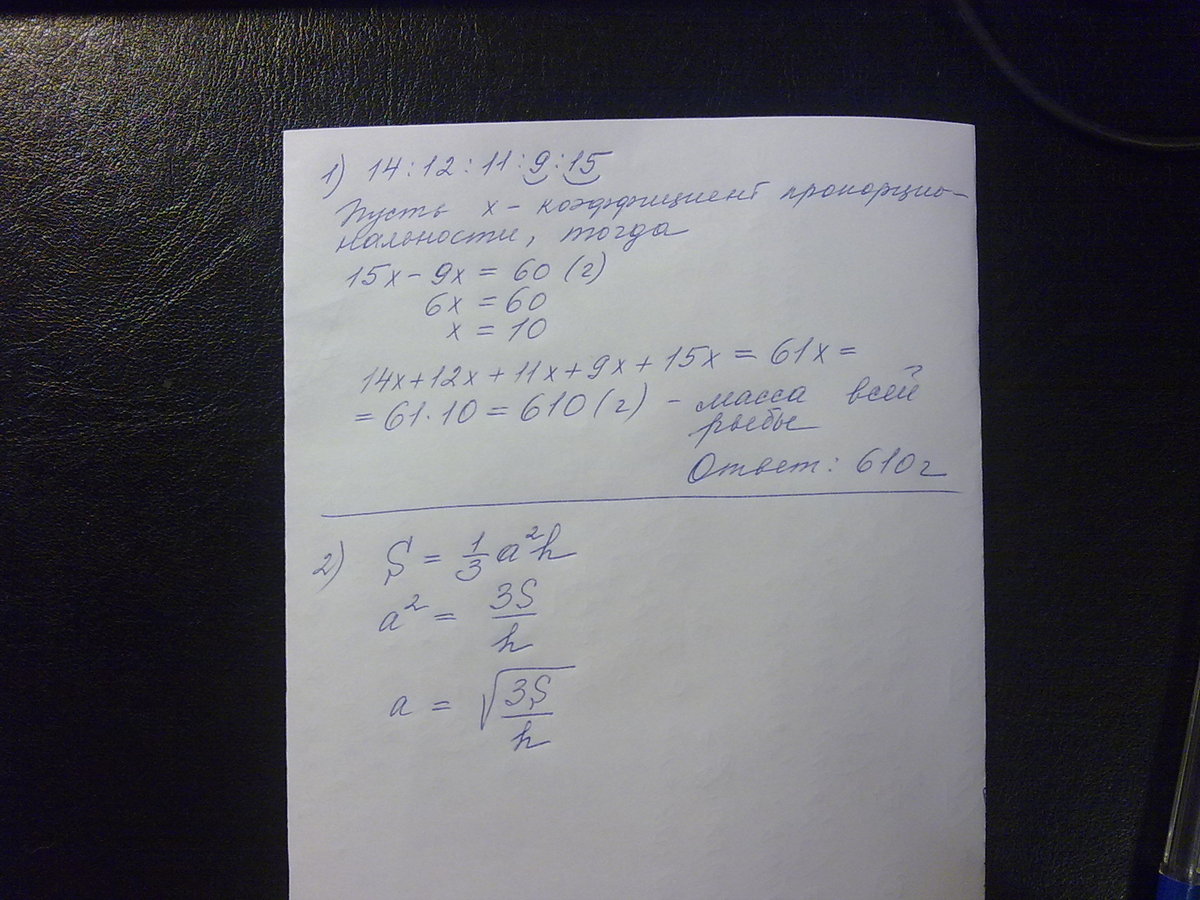 1) 14:12:11:9:15
Пусть x - коэффициент пропорцио-
нальности, тогда
15x - 9x = 60 (г)
6x = 60
x = 10
14x + 12x + 11x + 9x + 15x = 61x =
= 61·10 = 610 (г) - масса всей
рыбы
Ответ: 610г
2) S = 1/3 a²h
a² = 3S/h
a = √(3S/h)